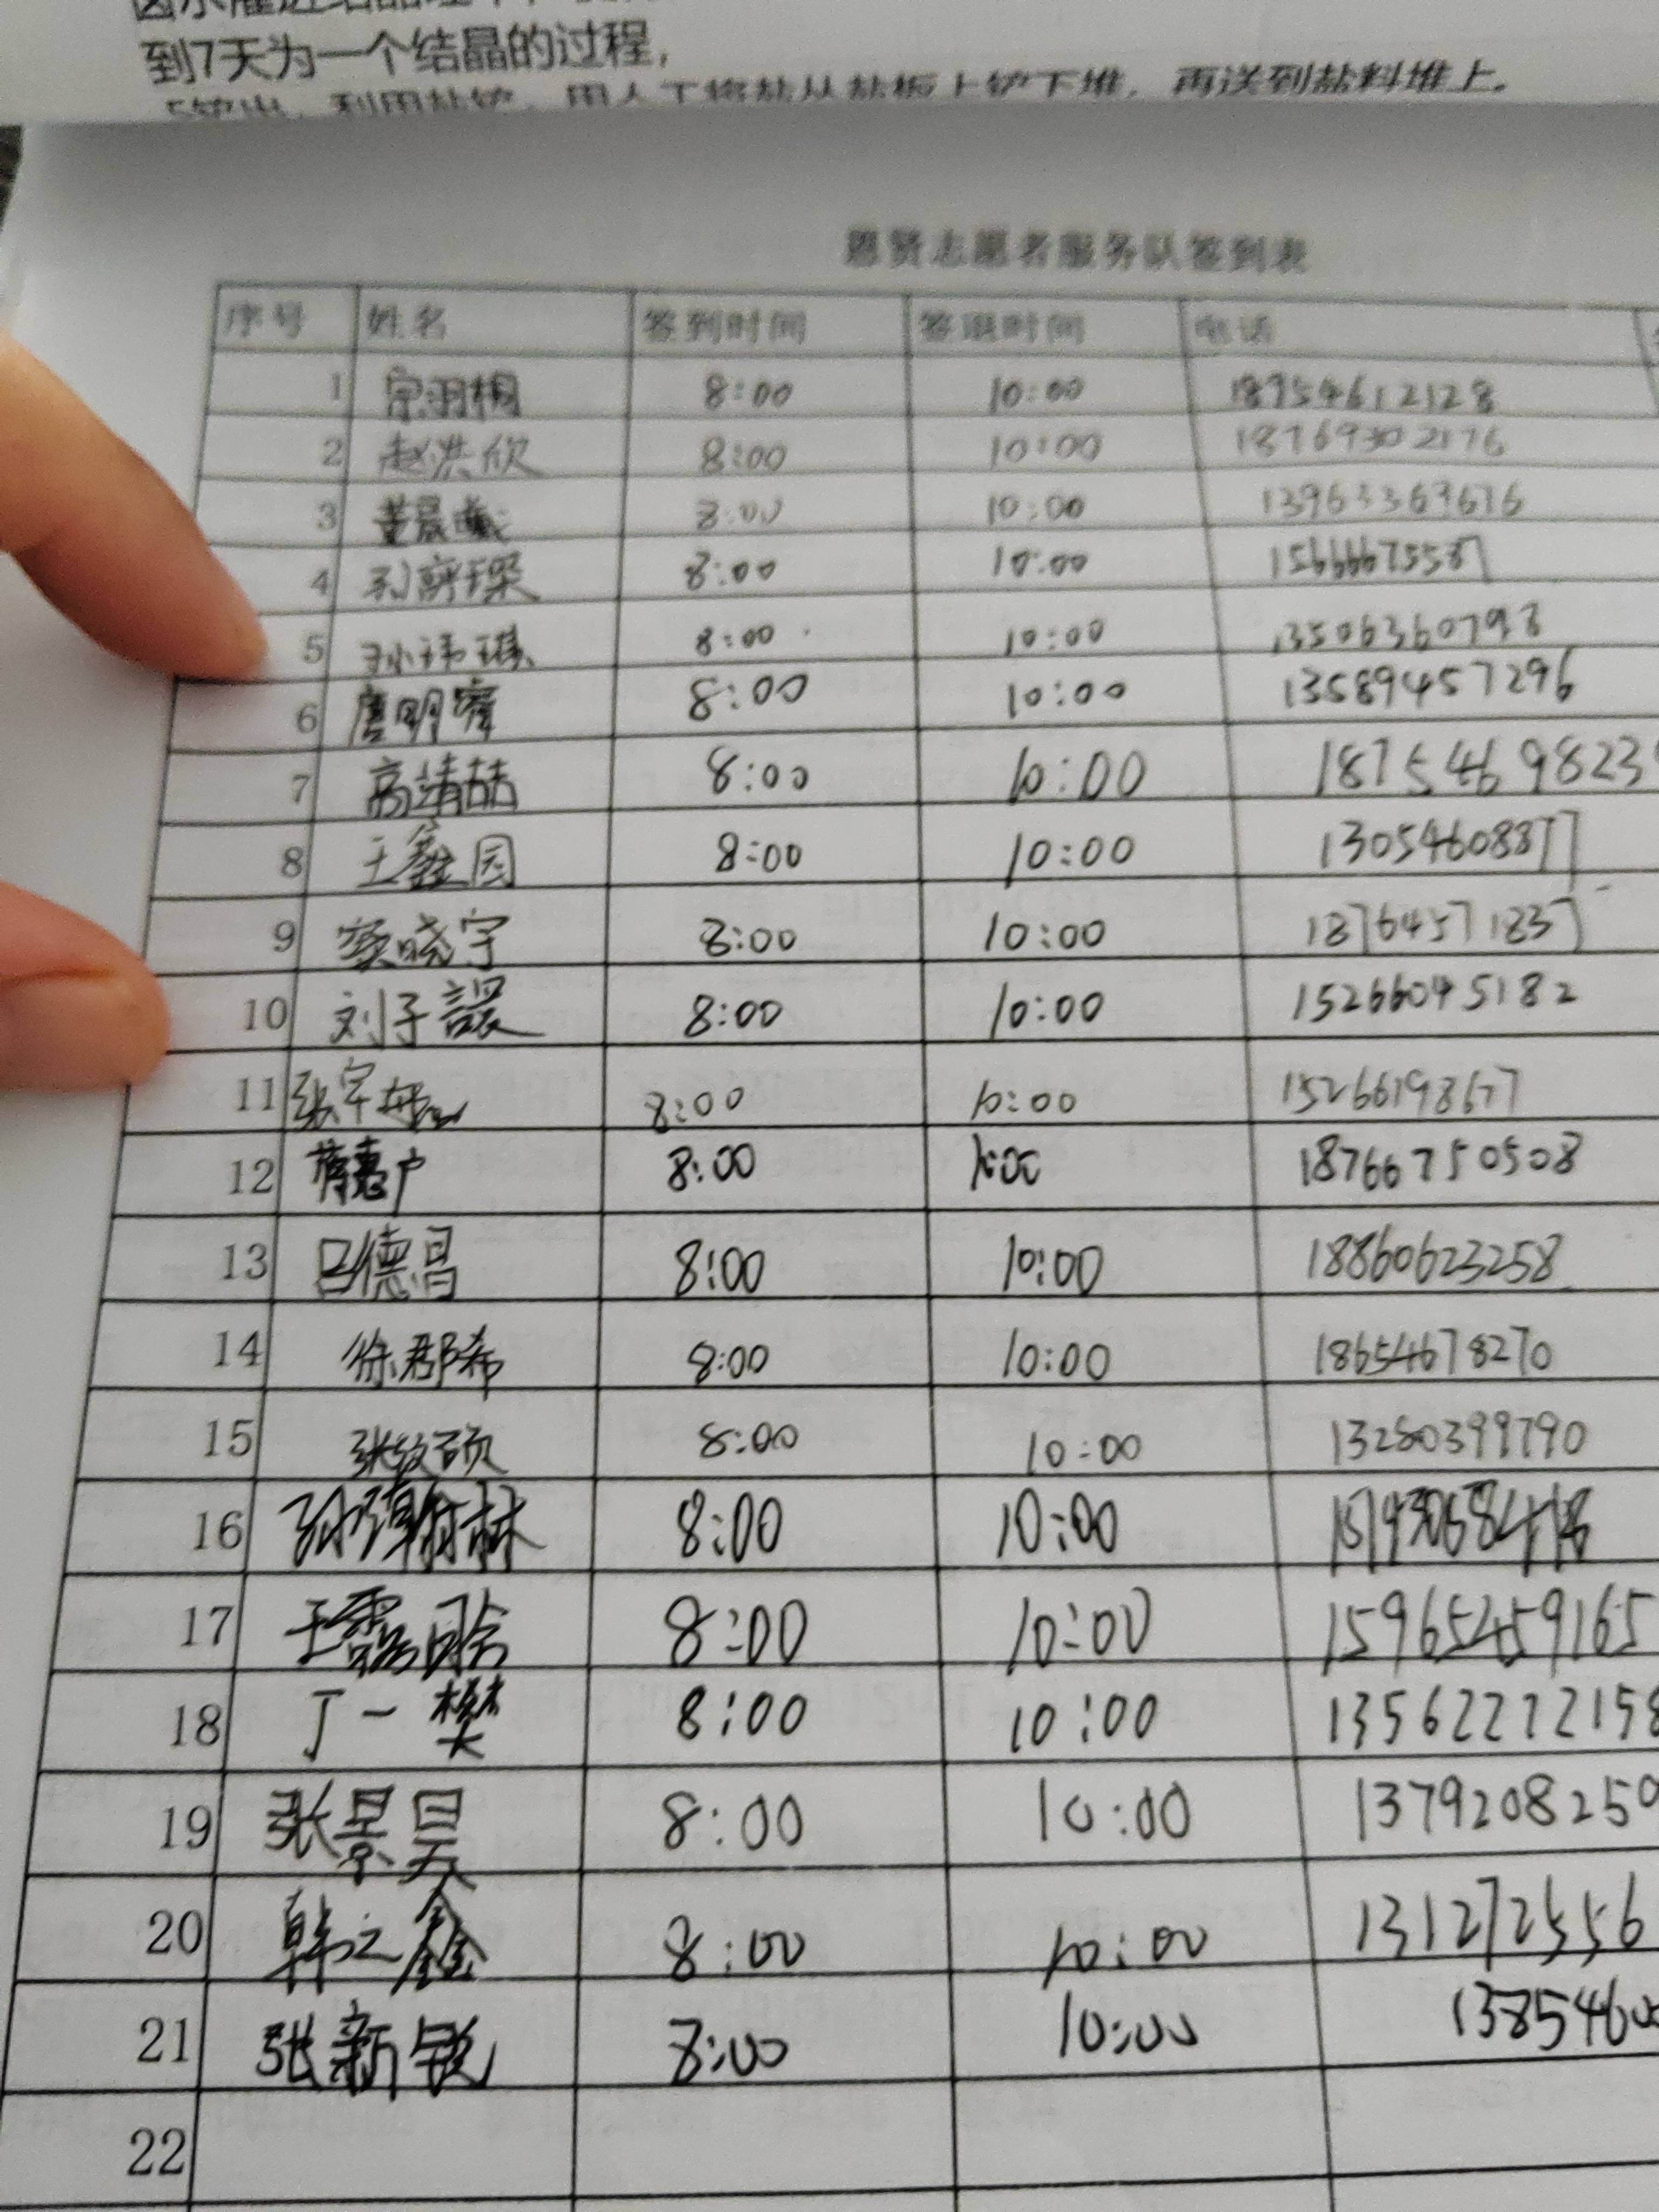 到7天为一个结晶的过程，
用人工将盐从盐板上铲下堆，再送到盐料堆上。
志愿者服务队签到表
序号 姓名 签到时间 签退时间 电话
1 8:00 10:00 18954612128
2 赵洪欣 8:00 10:00 18769302176
3 董晨曦 8:00 10:00 13963369676
4 8:00 10:00 15666675587
5 孙玮琪 8:00 10:00 13506360798
6 唐明睿 8:00 10:00 13589457296
7 高靖喆 8:00 10:00 1875469823
8 王鑫园 8:00 10:00 13054608877
9 窦晓宇 8:00 10:00 18764571837
10 刘子 8:00 10:00 15266045182
11 张宇 8:00 10:00 15266198677
12 8:00 18766750508
13 吕德昌 8:00 10:00 18860623258
14 徐郡希 8:00 10:00 18654678270
15 张纹硕 8:00 10:00 13280399790
16 8:00 10:00
17 王露晗 8:00 10:00 15965459165
18 丁一樊 8:00 10:00 13562272158
19 张景昊 8:00 10:00 1379208250
20 韩之鑫 8:00 10:00 131272556
21 张新锐 8:00 10:00 1385460
22